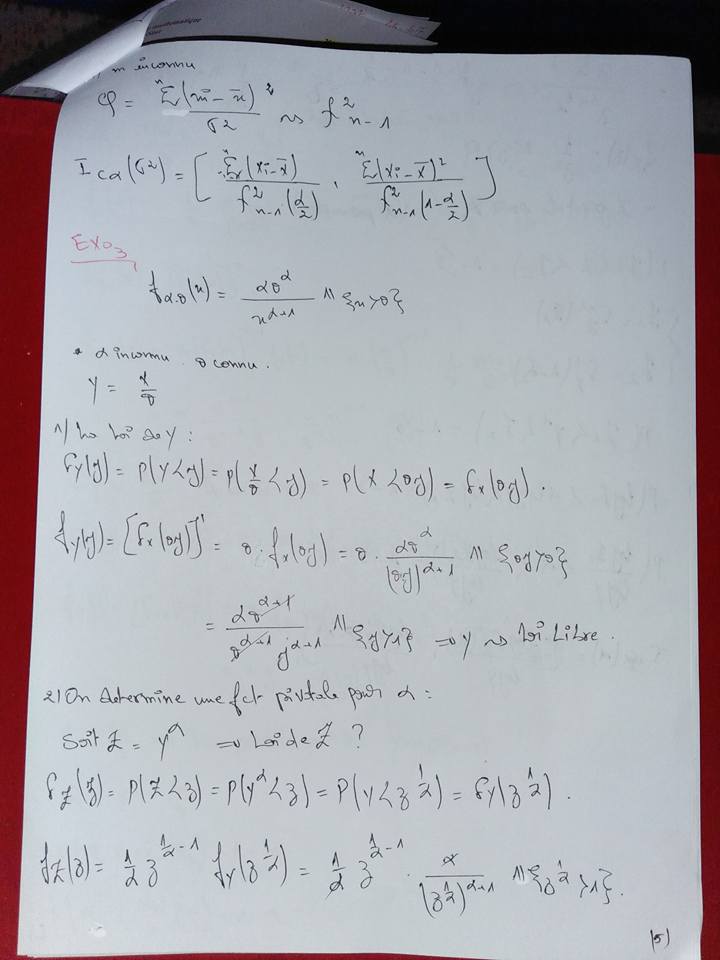 m inconnu
φ = Σⁿ(xi - x̄)² / σ² ~> χ²ₙ₋₁
I_cα(σ²) = [ Σⁿ(xi - x̄) / χ²ₙ₋₁(α/2) , Σⁿ(xi - x̄)² / χ²ₙ₋₁(1 - α/2) ]
EXO3
f_α,θ(x) = αθ^α / x^(α+1) 𝟙{x>θ}
* α inconnu θ connu.
Y = X/θ
1/ La loi de Y :
F_Y(y) = P(Y<y) = P(X/θ < y) = P(X < θy) = F_X(θy).
f_Y(y) = [F_X(θy)]' = θ·f_X(θy) = θ· αθ^α / (θy)^(α+1) 𝟙{θy>θ}
= αθ^(α+1) / θ^(α+1) y^(α+1) 𝟙{y>1} => Y ~> loi Libre.
2/ On determine une fct pivotale pour α :
Soit Z = Y^α => Loi de Z ?
F_Z(z) = P(Z<z) = P(Y^α<z) = P(Y<z^(1/α)) = F_Y(z^(1/α)).
f_Z(z) = 1/α z^(1/α - 1) f_Y(z^(1/α)) = 1/α z^(1/α - 1) · α / (z^(1/α))^(α+1) 𝟙{z^(1/α) >1}.
(5)